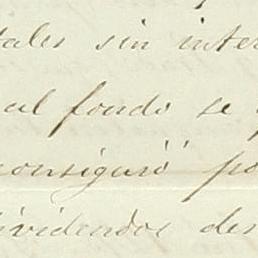 tales sin inter
al fondo se
consiguió po
dividendos des